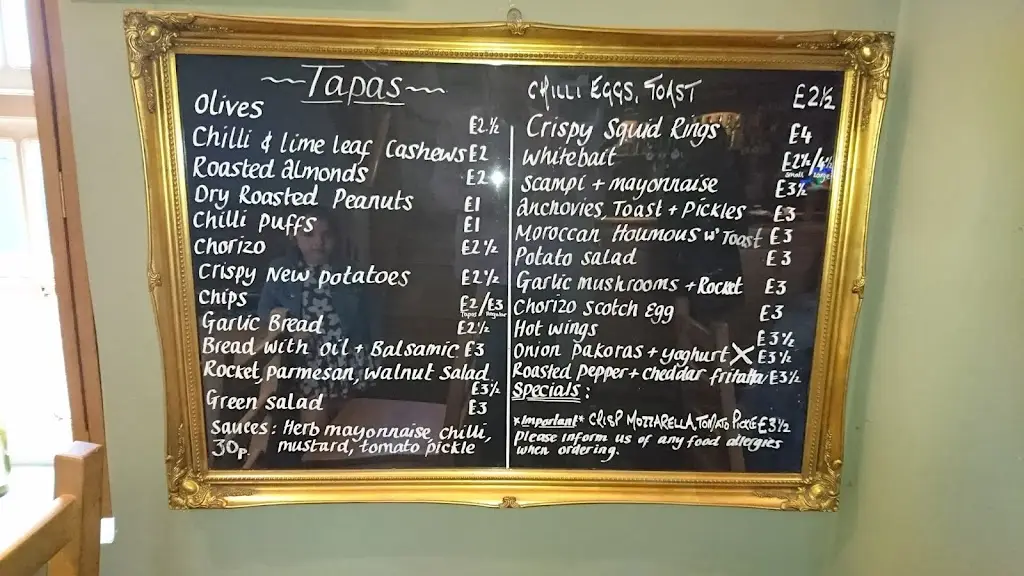 ~ Tapas ~
Olives £2½
Chilli & lime leaf Cashews £2
Roasted almonds £2
Dry Roasted Peanuts £1
Chilli puffs £1
Chorizo £2½
Crispy New potatoes £2½
Chips £2/£3
Tapas Regular
Garlic Bread £2½
Bread with oil + Balsamic £3
Rocket, parmesan, walnut Salad £3½
Green salad £3
Sauces: Herb mayonnaise, chilli,
30p. mustard, tomato pickle
CHILLI EGGS, TOAST £2½
Crispy Squid Rings £4
Whitebait £2½/4½
Small Large
Scampi + mayonnaise £3½
Anchovies, Toast + Pickles £3
Moroccan Houmous w' Toast £3
Potato salad £3
Garlic mushrooms + Rocket £3
Chorizo Scotch Egg £3
Hot wings £3½
Onion pakoras + yoghurt X £3½
Roasted pepper + cheddar fritatta £3½
Specials:
*Important* CRISP MOZZARELLA, TOMATO PICKLE £3½
Please inform us of any food allergies
when ordering.